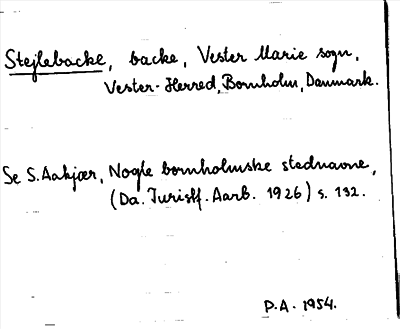 Stejlebacke, backe, Vester Marie sogn,
Vester-Herred, Bornholm, Danmark.
Se S. Aakjær, Nogle bornholmske stednavne,
(Da. Turistf. Aarb. 1926) s. 132.
P.A. 1954.